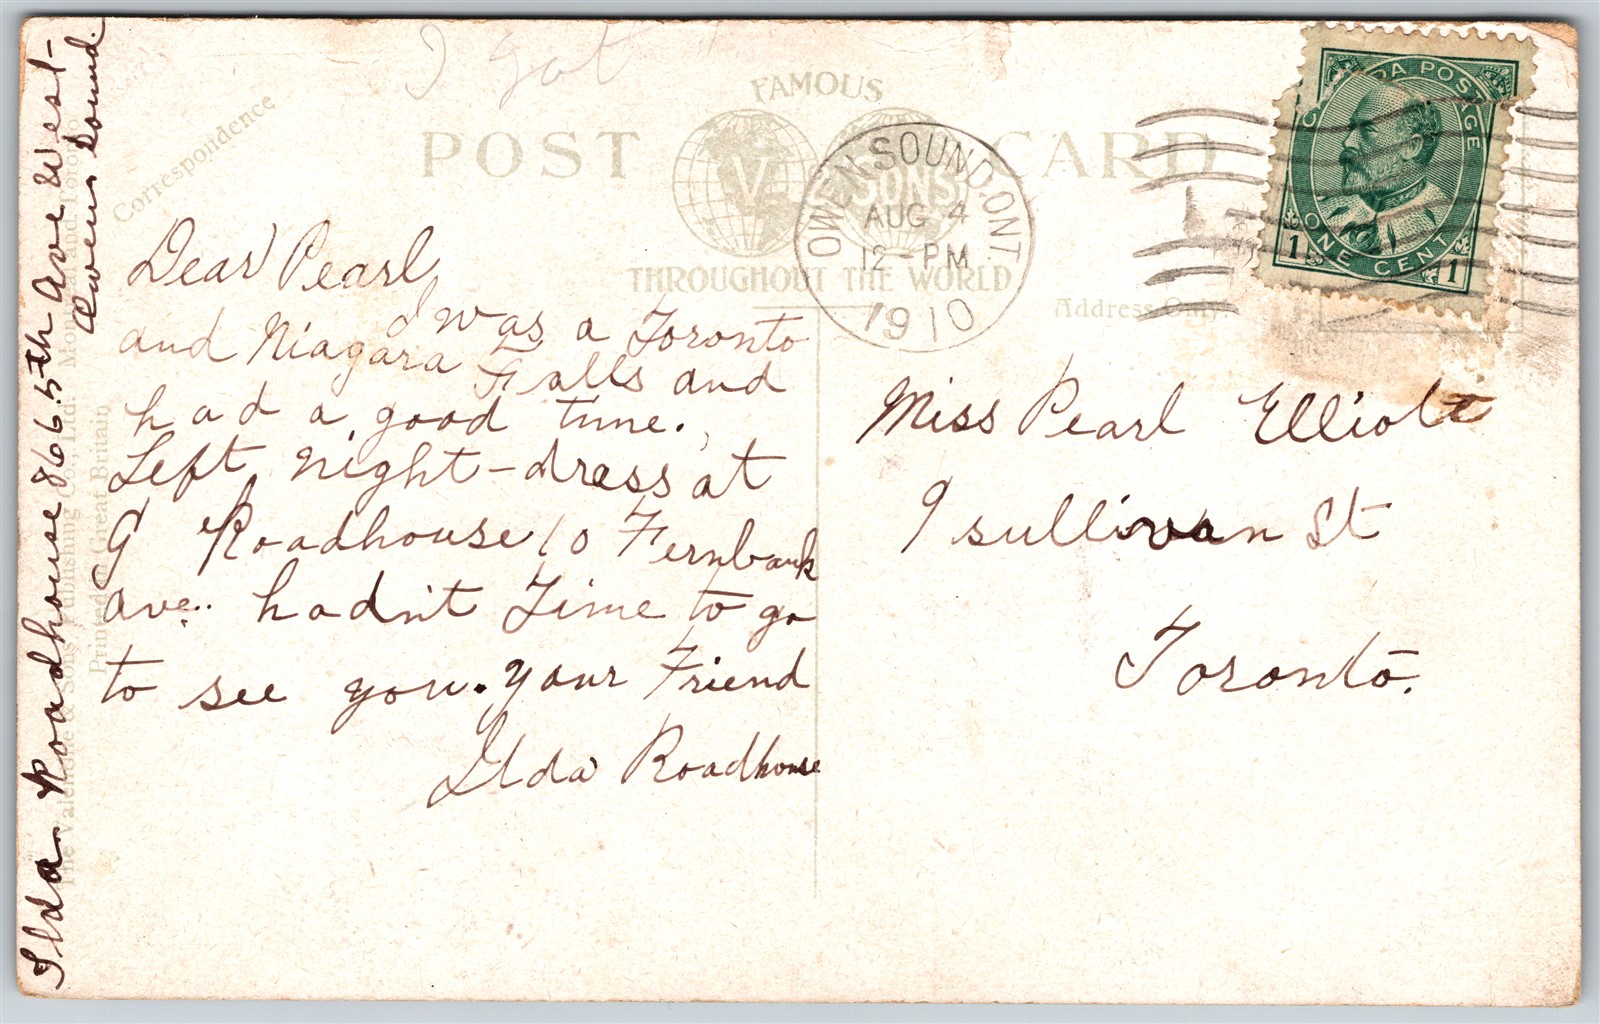 I got
FAMOUS
POST CARD
V & SONS
THROUGHOUT THE WORLD
Correspondence
Address Only.
OWEN SOUND. ONT.
AUG 4
12 - PM
1910
CANADA POSTAGE
ONE CENT
1 1
Dear Pearl,
I was a Toronto
and Niagara Falls and
had a good time.
Left night-dress at
G Roadhouse 10 Fernbank
ave. hadn't Time to go
to see you. your Friend
Ilda Roadhouse
Miss Pearl Elliott
9 sullivan St
Toronto.
Ilda Roadhouse 866.5th Ave West-
Owens Sound.
The Valentine & Sons Publishing Co., Ltd. Montreal and Toronto
Printed in Great Britain